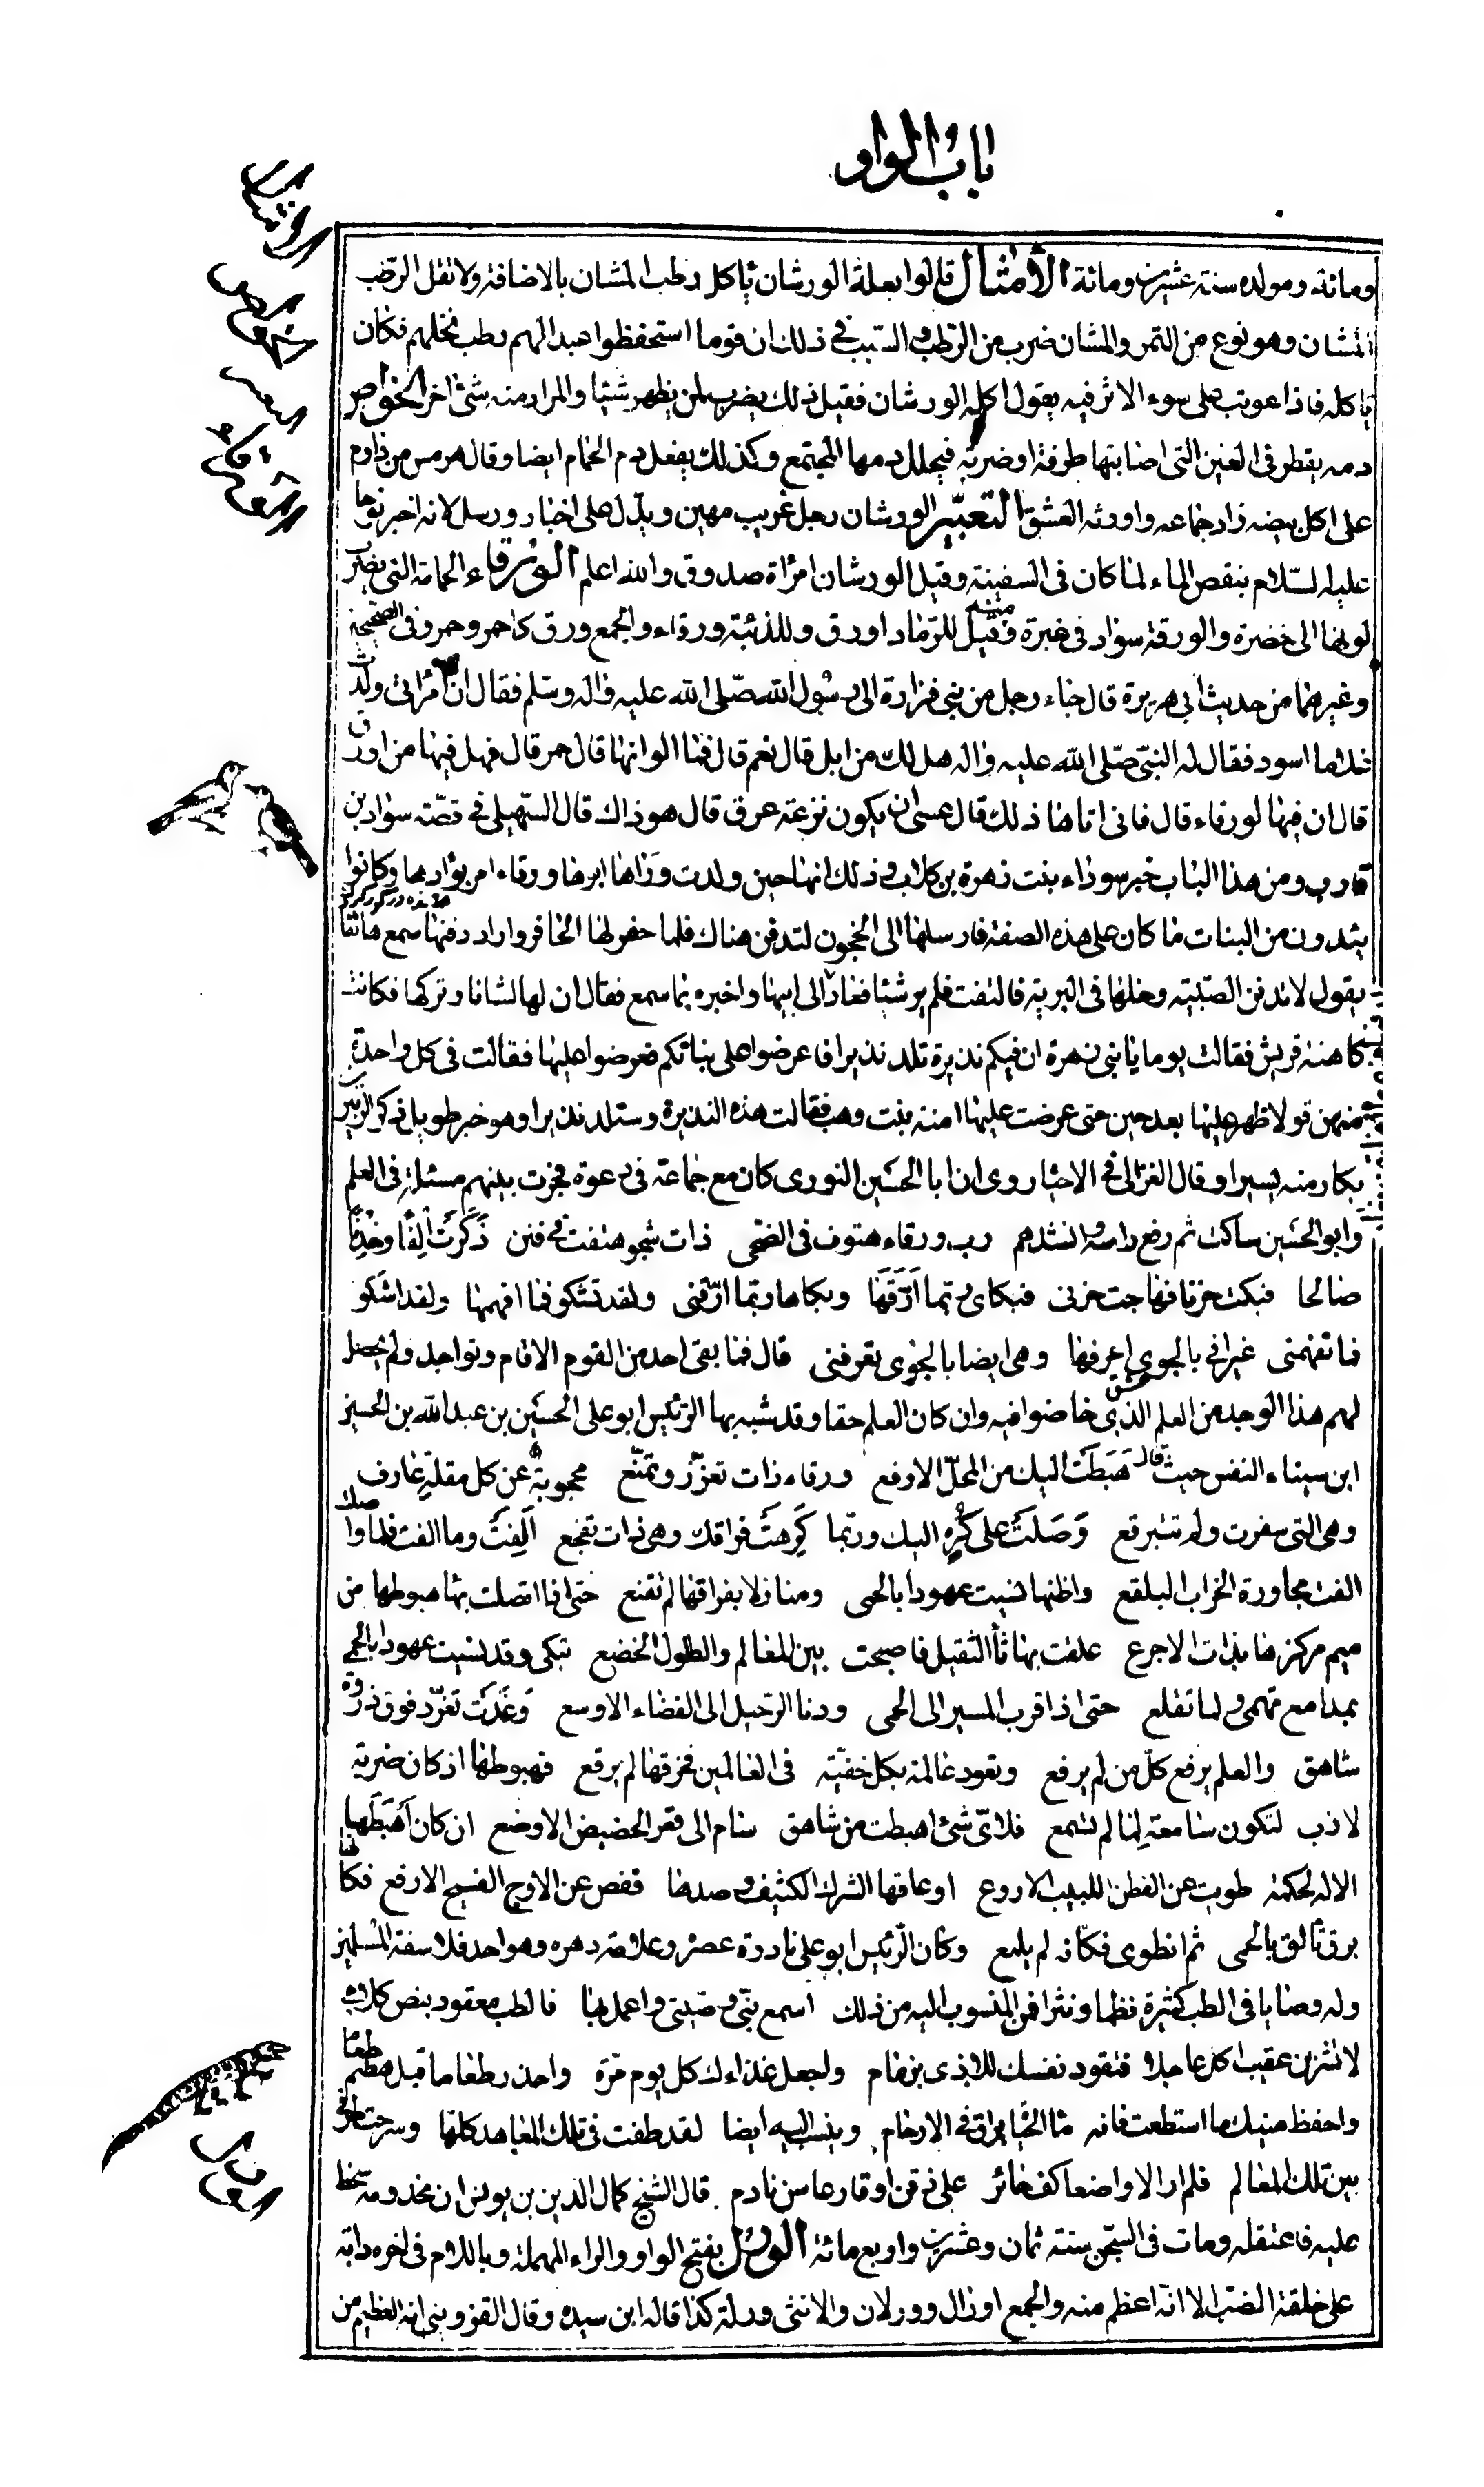 باب الواو
ومائة ومولده سنة عشرين ومائة الأمثال قالوا بعلة الورشان ياكل رطب المشان بالاضافة ولا تقل الرطب
المشان وهو نوع من التمر والمشان ضرب من الرطب والسبب فى ذلك ان قوما استحفظوا عبدا لهم رطب نخلهم فكان
ياكله فاذا عوتب على سوء الاثر فيه يقول اكله الورشان فقيل ذلك يضرب لمن يظهر شيئا والمراد منه شئ اخر الخواص
دمه يقطر فى العين التى اصابتها طرفة او ضربة فيحلل دمها المجتمع وكذلك يفعل دم الحمام ايضا وقال هرمس من داوم
على اكل بيضه زاد جماعه واورثه العشق التعبير الورشان رجل غريب مهين ويدل على اخبار ورسل لانه اخبر نوحا
عليه السلام بنقص الماء لما كان فى السفينة وقيل الورشان امرأة صدوق والله اعلم الورقاء الحمامة التى يضرب
لونها الى خضرة والورقة سواد فى غبرة ومنه قيل للرماد اورق وللذئبة ورقاء والجمع ورق كاحمر وحمر وفى الصحيحين
وغيرهما من حديث ابى هريرة قال جاء رجل من بنى فزارة الى رسول الله صلى الله عليه واله وسلم فقال ان امرأتى ولدت
غلاما اسود فقال له النبى صلى الله عليه واله هل لك من ابل قال نعم قال فما الوانها قال حمر قال فهل فيها من اورق
قال ان فيها لورقاء قال فانى اتاها ذلك قال عسى ان يكون نزعة عرق قال هو ذاك قال السهيلى فى قصة سواد بن
قارب ومن هذا الباب خبر سوداء بنت زهرة بن كلاب وذلك انها حين ولدت وراها ابوها ورقاء امر بوادها وكانوا
يئدون من البنات ما كان على هذه الصفة فارسلها الى الحجون لتدفن هناك فلما حفر لها الحافر واراد دفنها سمع هاتفا
يقول لا تدفن الصبية وخلها فى البرية فالتفت فلم ير شيئا فعاد الى ابيها واخبره بما سمع فقال ان لها لشانا وتركها فكانت
كاهنة قريش فقالت يوما يا بنى زهرة ان فيكم نذيرة تلد نذيرا فاعرضوا على بناتكم فعرضوا عليها فقالت فى كل واحدة
منهن قولا ظهر عليها بعد حين حتى عرضت عليها امنة بنت وهب فقالت هذه النذيرة وستلد نذيرا وهو خبر طويل ذكر الزبير
بكار منه يسيرا وقال الغزالى فى الاحياء روى ان ابا الحسين النورى كان مع جماعة فى دعوة فجرت بينهم مسئلة فى العلم
وابو الحسين ساكت ثم رفع راسه وانشدهم رب ورقاء هتوف فى الضحى ذات شجو هتفت فى فنن ذَكَرَت اِلفًا وخِدنًا
صالحا فبكت حزنا فهاجت حزنى فبكاى ربما اَرَّقَهَا وبكاها ربما ارّقنى ولقد تشكو فما افهمها ولقد اشكو
فما تفهمنى غير انى بالجوى اعرفها وهى ايضا بالجوى تعرفنى قال فما بقى احد من القوم الا قام وتواجد ولم يحصل
لهم هذا الوجد من العلم الذى خاضوا فيه وان كان العلم حقا وقد شبه بها الرئيس ابو على الحسين بن عبد الله بن الحسين
ابن سيناء النفس حيث قال هَبَطَت اليك من المحلّ الاوفع ورقاء ذات تعزّز وتمنّع محجوبة عن كل مقلة عارف
وهى التى سفرت ولم تتبرقع وَصَلَت على كُرهٍ اليك وربّما كَرِهَت فراقك وهى ذات تفجع اَلِفَت وما الفت فلما واصلت
الفت مجاورة الخراب البلقع واظنها نسيت عهودا بالحمى ومنازلا بفراقها لم تقنع حتى اذا اتصلت بها هبوطها من
ميم مركزها بذات الاجرع علقت بها ثأ الثقيل فاصبحت بين المعالم والطلول الخضع تبكى وقد نسيت عهودا بالحمى
بمدامع تهمى ولما تقلع حتى اذا قرب المسير الى الحمى ودنا الرحيل الى الفضاء الاوسع وَغَدَت تغرّد فوق ذروة
شاهق والعلم يرفع كلّ من لم يرفع وتعود عالمة بكل خفيّة فى العالمين فخرقها لم يرقع فهبوطها اذ كان ضربة
لازب لتكون سامعة لما لم تسمع فلاىّ شئ اهبطت من شاهق سام الى قعر الحضيض الاوضع ان كان اَهبَطَها
الاله لحكمة طويت عن الفطن اللبيب الاروع او عاقها الشرك الكثيف وصدها قفص عن الاوج الفسيح الارفع فكانما
برق تألق بالحمى ثم انطوى فكأنه لم يلمع وكان الرّئيس ابو على نادرة عصره وعلامة دهره وهو احد فلاسفة المسلمين
وله وصايا فى الطب كثيرة نظما ونثرا فمن المنسوب اليه من ذلك اسمع بنىّ وصيّتى واعمل بها فالطب معقود بنص كلامى
لا تشربن عقيب اكل عاجلا فتقود نفسك للاذى بزمام واجعل غذاءك كل يوم مرّة واحذر طعاما قبل هضم طعام
واحفظ منيك ما استطعت فانه ماء الحيا يراق فى الارحام وينسب اليه ايضا لقد طفت فى تلك المعاهد كلها وسرحت طرفى
بين تلك المعالم فلم ار الا واضعا كف حائر على ذقن او قارعا سن نادم قال الشيخ كمال الدين بن يونس ان مخدومه سخط
عليه فاعتقله ومات فى السجن سنة ثمان وعشرين واربع مائة الورل بفتح الواو والراء المهملة وباللام فى اخره دابة
على خلقة الضب الا انه اعظم منه والجمع اورال وورلان والانثى ورلة كذا قاله ابن سيده وقال القزوينى انه العظيم من